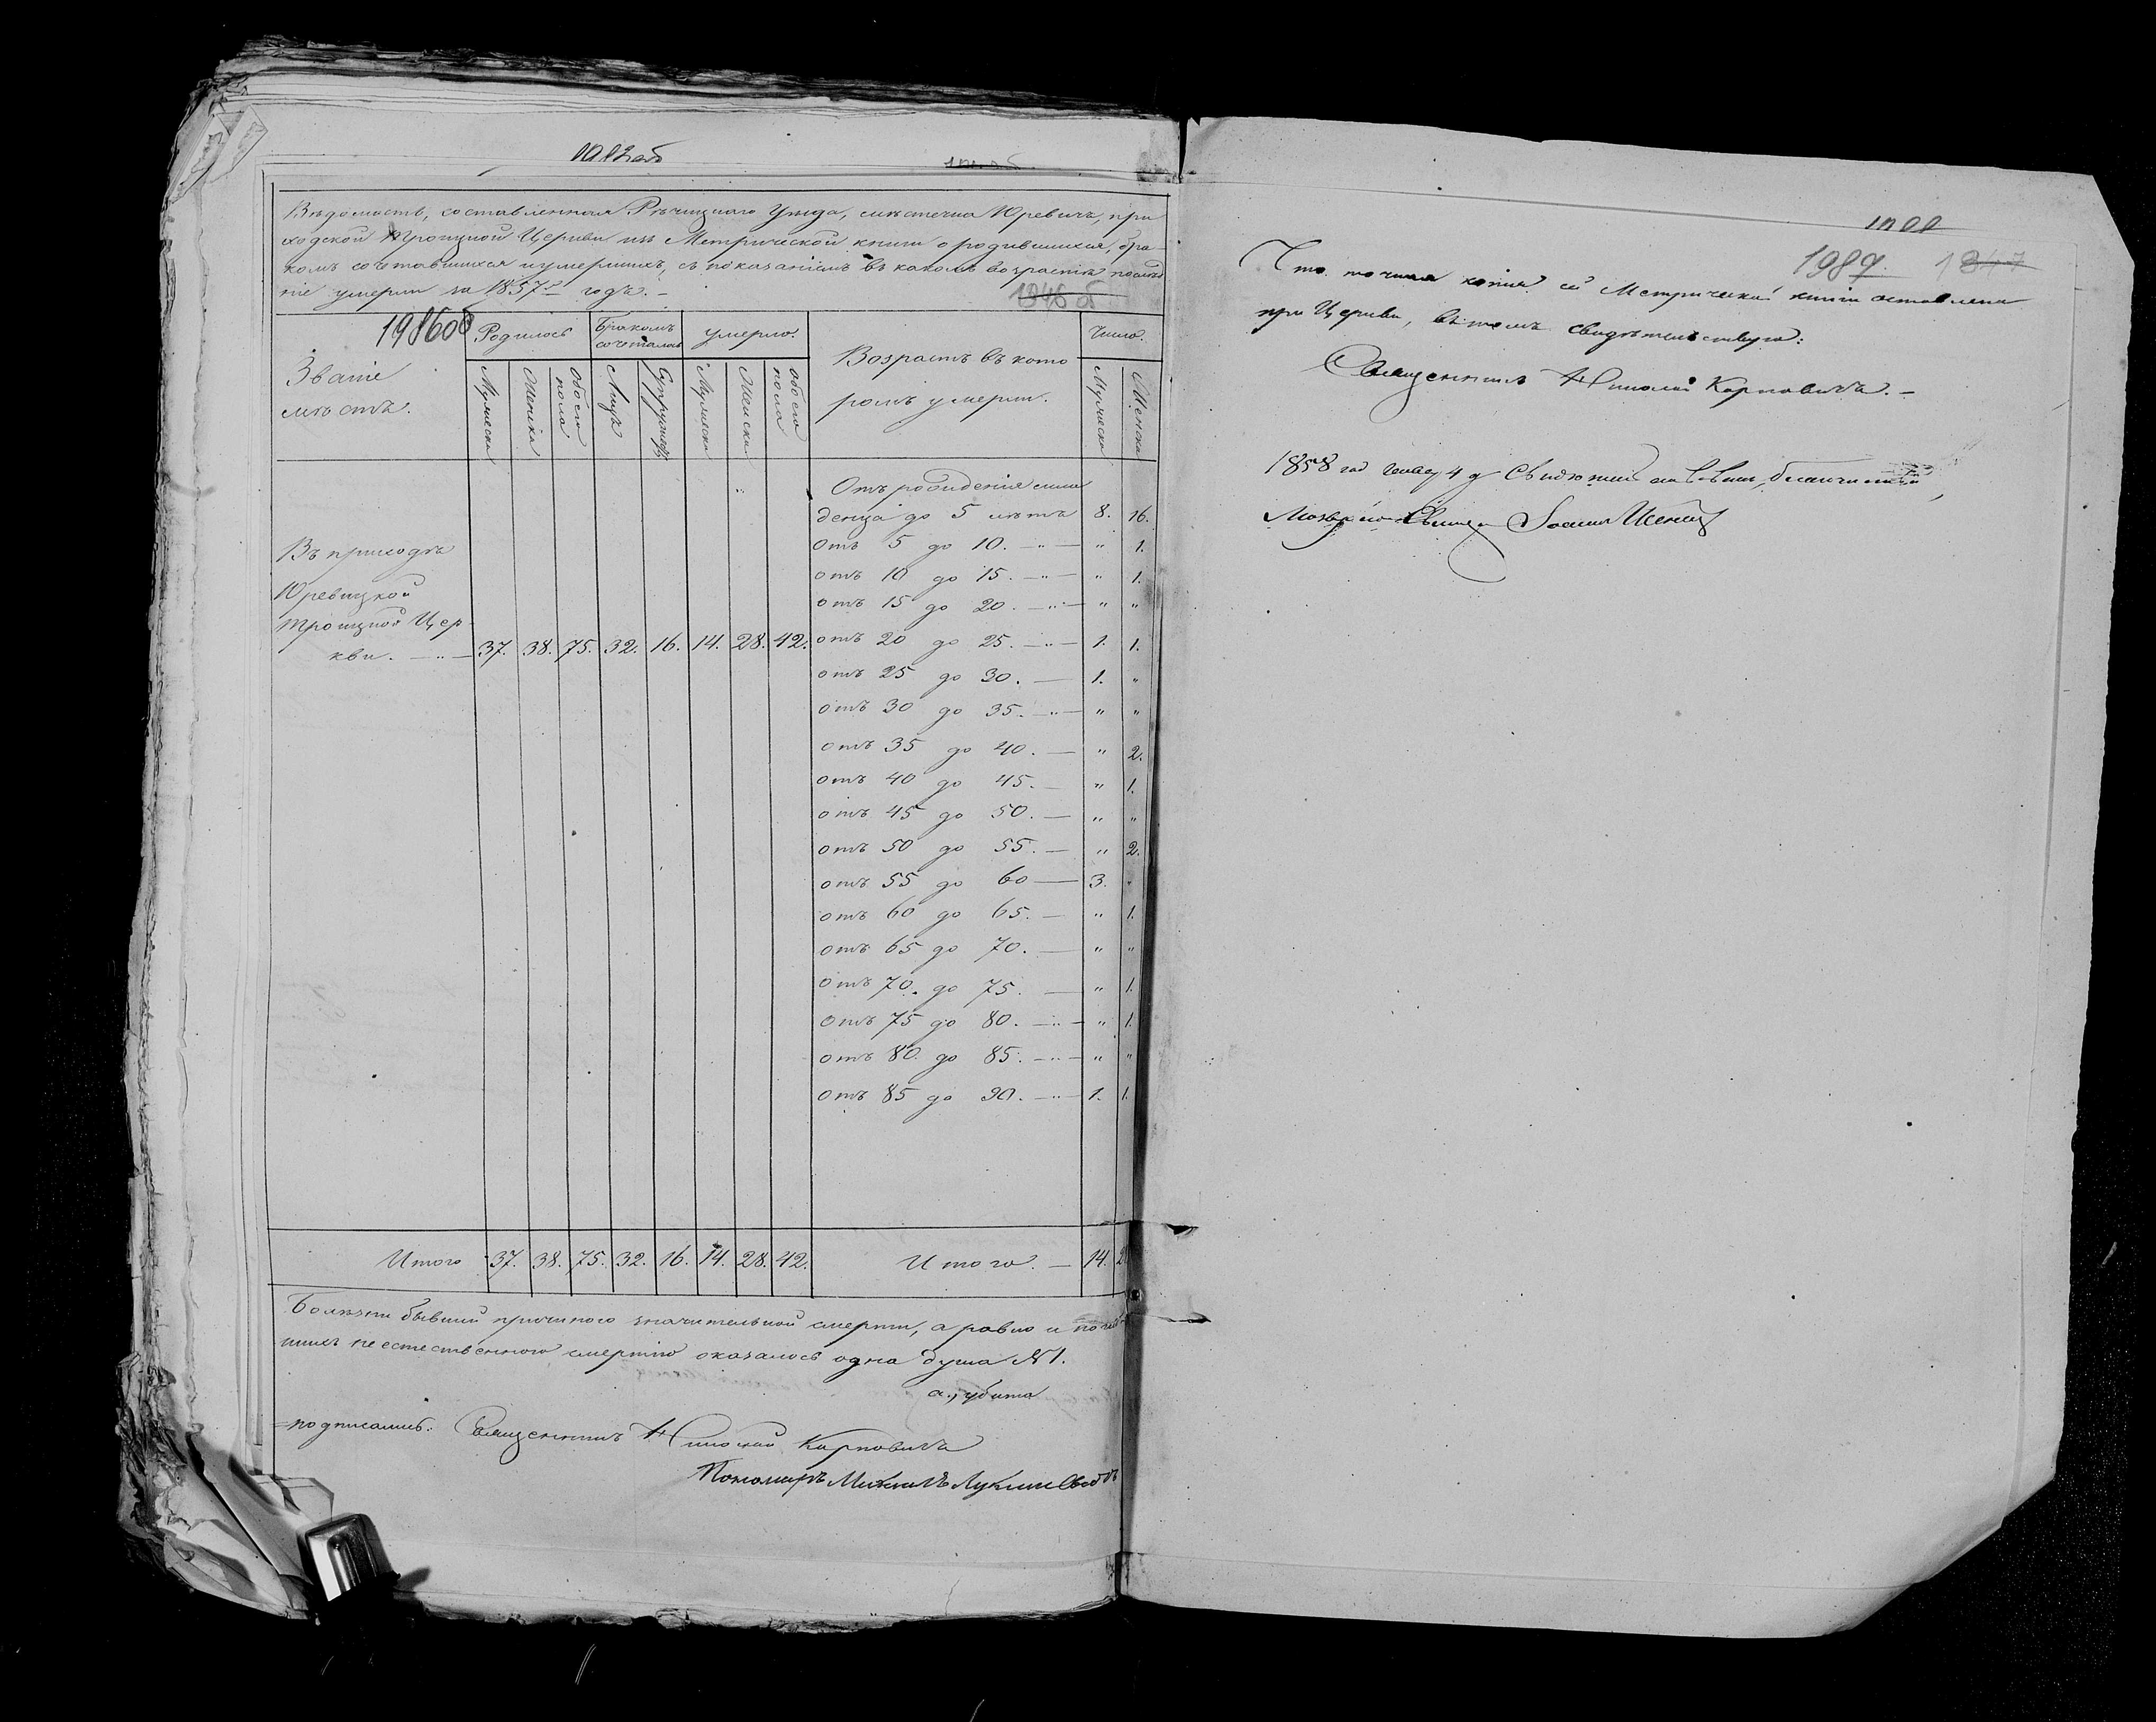 Вѣдомость, составленная Рѣчицкаго Уѣзда, мѣстечка Юревичъ, при
ходской Троицкой Церкви изъ Метрической книги о родившихся, бра-
комъ сочетавшихся и умершихъ, съ показаніемъ въ какомъ возрастѣ послѣд
ніе умерли за 1857й годъ. –
1946 об
1986 об
Званіе
мѣстъ.
Родилось
Бракомъ
сочеталось
Умерло.
Возрастъ въ кото
ромъ умерли.
Число.
Мужеска
Женска
Обоего
пола
Лицъ
Супружествъ
Мужеска
Женска
Обоего
пола
Мужеска
Женска
Въ приходѣ
Юревицкой
Троицкой Цер
кви. 37. 38. 75. 32. 16. 14. 28. 42.
Отъ рожденія мла
денца до 5 лѣтъ 8. 16.
отъ 5 до 10. — " — " 1.
отъ 10 до 15. — " — " 1.
отъ 15 до 20. — " — " "
отъ 20 до 25. — " — 1. 1.
отъ 25 до 30. — 1. "
отъ 30 до 35. — " — " "
отъ 35 до 40. — " 2.
отъ 40 до 45. — " 1.
отъ 45 до 50. — " "
отъ 50 до 55. — " 2.
отъ 55 до 60 — 3. "
отъ 60 до 65. — " 1.
отъ 65 до 70. — " "
отъ 70. до 75. — " 1.
отъ 75 до 80. — " — " 1.
отъ 80. до 85. — " — " "
отъ 85 до 90. — " — 1. 1.
Итого 37. 38. 75. 32. 16. 14. 28. 42. Итого. — 14. 2
Болѣзни бывшей причиною значительной смерти, а равно и
шихъ неестественною смертію оказалось одна душа №1.
а., убита
подписались: Священникъ Николай Карповичъ
Пономарь Михаилъ
1987. 1947
Что точная копія сей Метрической книги оставлена
при Церкви, въ томъ свидѣтельствую:
Священникъ Николай Карповичъ. –
1858 год 4 д